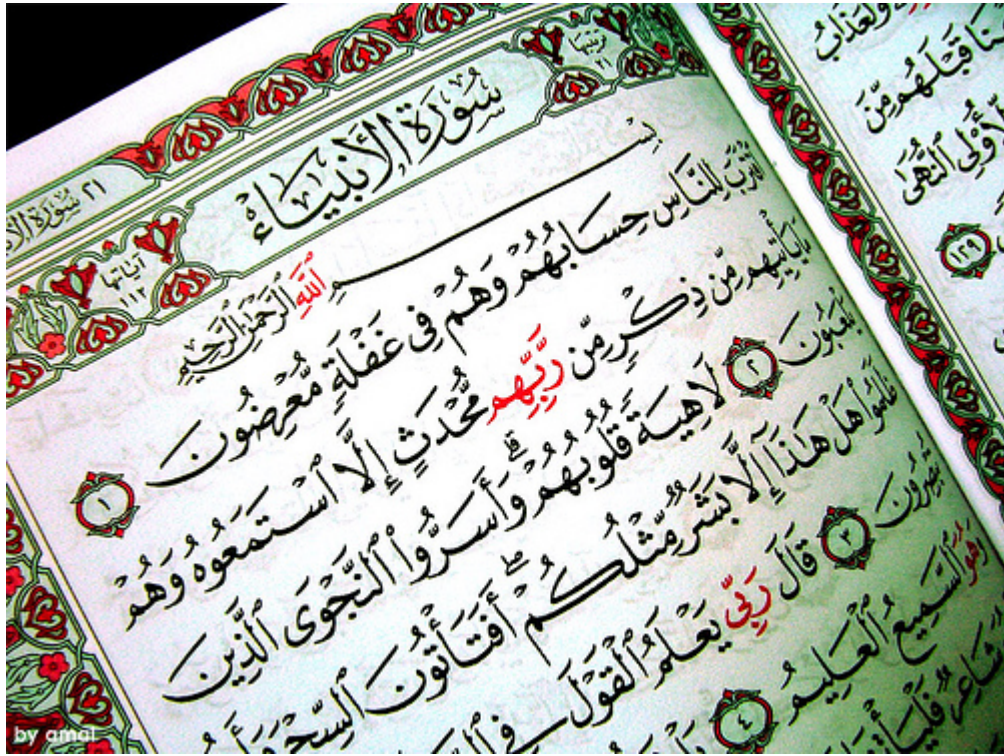 ٢١ سُورَةُ الأَنبِ
سُورَةُ الأَنبِيَاءِ
آيَاتُهَا
١١٢
بِسْمِ اللَّهِ الرَّحْمَٰنِ الرَّحِيمِ
ٱقْتَرَبَ لِلنَّاسِ حِسَابُهُمْ وَهُمْ فِي غَفْلَةٍ مُّعْرِضُونَ ١
يَأْتِيهِم مِّن ذِكْرٍ مِّن رَّبِّهِم مُّحْدَثٍ إِلَّا ٱسْتَمَعُوهُ وَهُمْ
يَلْعَبُونَ ٢ لَاهِيَةً قُلُوبُهُمْ ۗ وَأَسَرُّوا۟ ٱلنَّجْوَى ٱلَّذِينَ
ظَلَمُوا۟ هَلْ هَٰذَآ إِلَّا بَشَرٌ مِّثْلُكُمْ ۖ أَفَتَأْتُونَ ٱلسِّحْرَ وَأَ
تُبْصِرُونَ ٣ قَالَ رَبِّي يَعْلَمُ ٱلْقَوْلَ فِي
وَهُوَ ٱلسَّمِيعُ ٱلْعَلِيمُ ٤
شَاعِرٌ فَلْيَأْ
وَلَعَذَابُ
قَبْلَهُم مِّنَ
لِّأُو۟لِي ٱلنُّهَىٰ
١٢٩
by amal